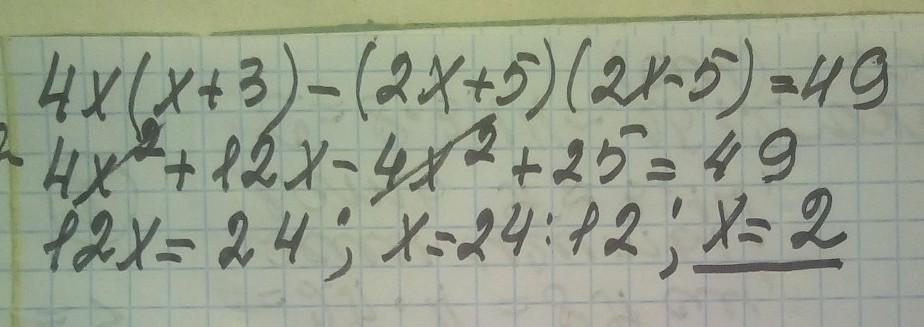 4x(x+3)-(2x+5)(2x-5)=49
4x²+12x-4x²+25=49
12x=24; x=24:12; x=2